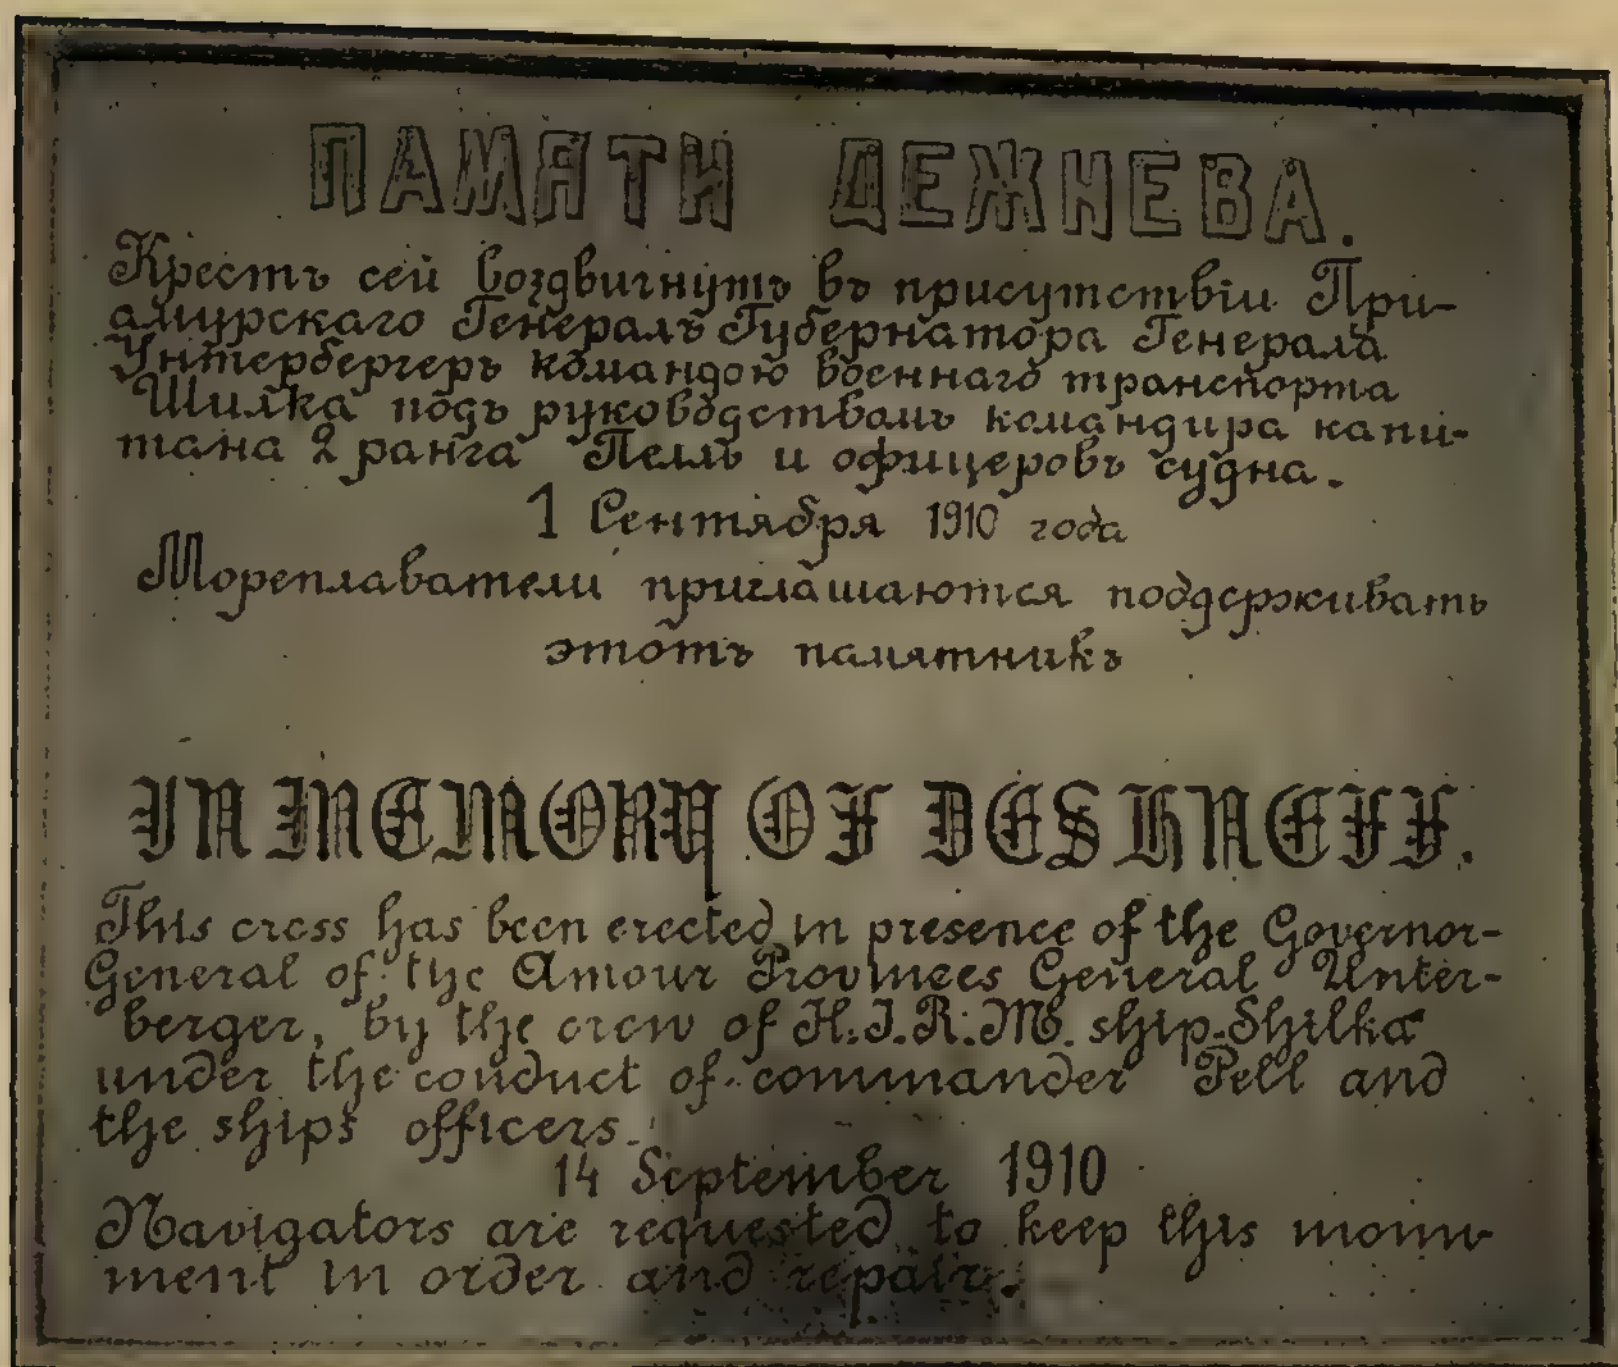 ПАМЯТИ ДЕЖНЕВА.
Крестъ сей воздвигнутъ въ присутствіи При-
амурскаго Генералъ Губернатора Генерала
Унтербергеръ командою военнаго транспорта
Шилка подъ руководствомъ командира капи-
тана 2 ранга Пелль и офицеровъ судна.
1 Сентября 1910 года
Мореплаватели приглашаются поддерживать
этотъ памятникъ
IN MEMORY OF DESHNEFF.
This cross has been erected in presence of the Governor-
General of the Amour Provinces General Unter-
berger, by the crew of H.I.R.M. ship Shilka
under the conduct of commander Pell and
the ships officers.
14 September 1910
Navigators are requested to keep this monu-
ment in order and repair.